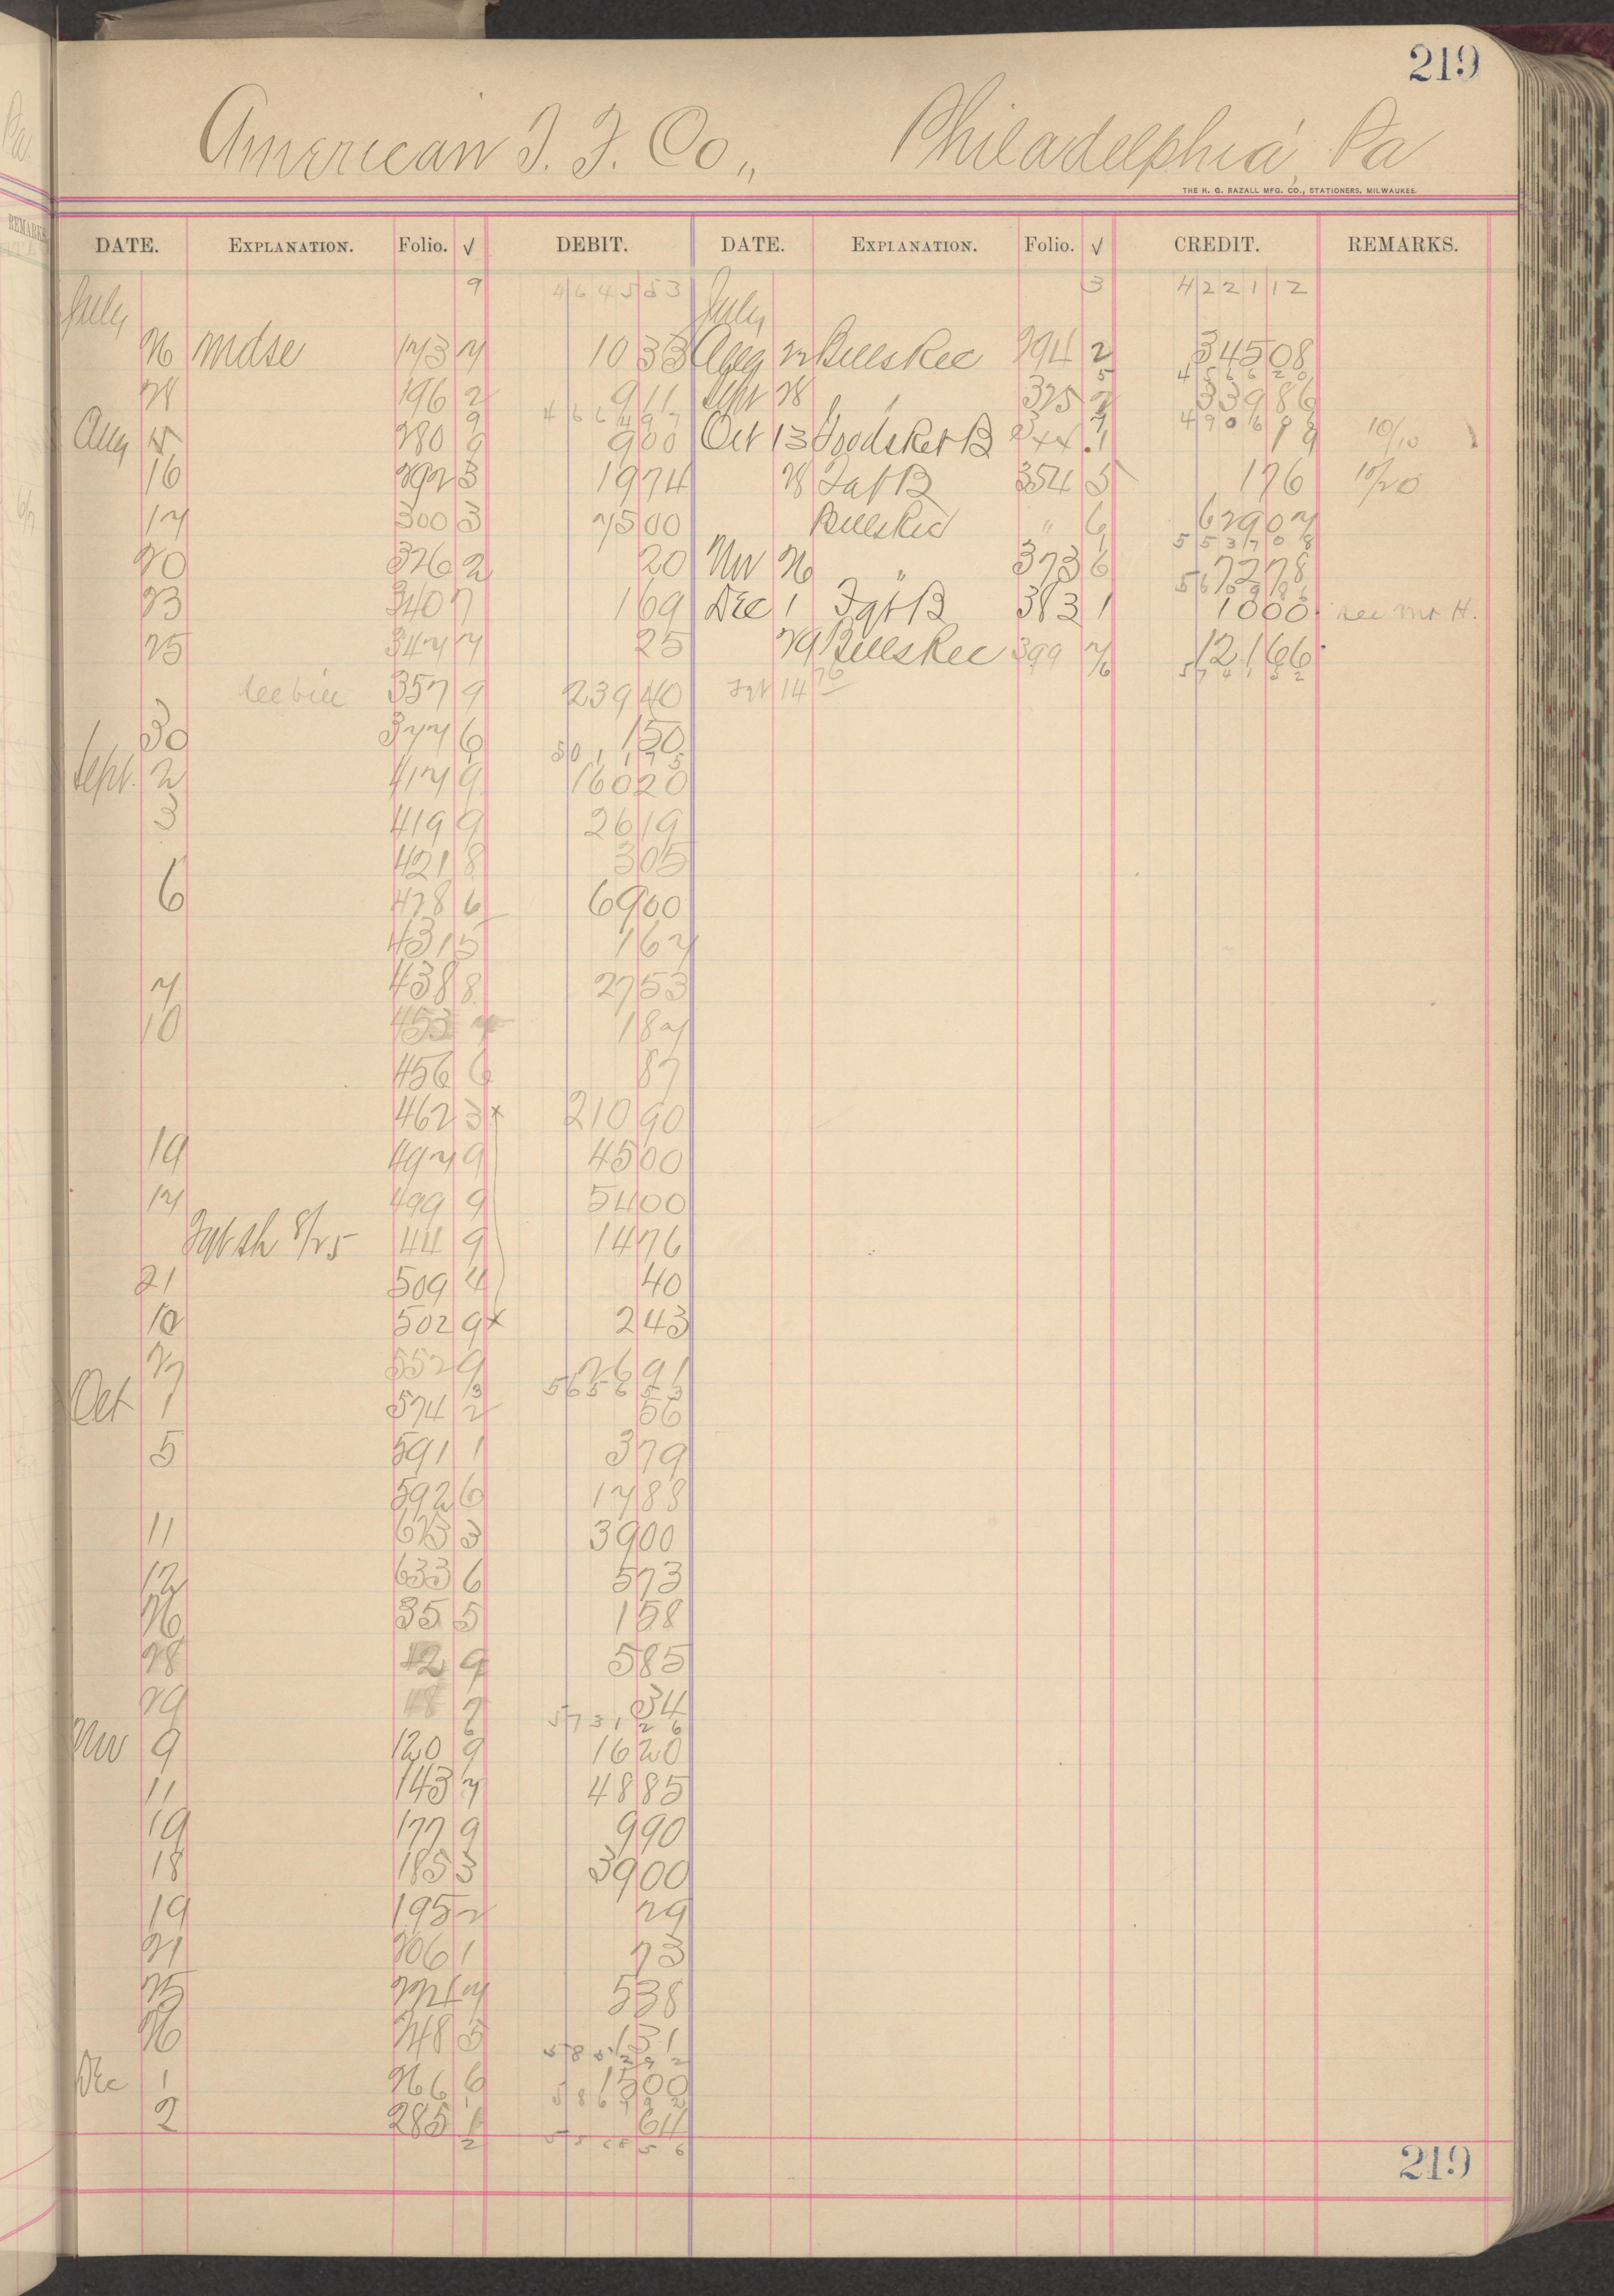 219
American I. F. Co., Philadelphia, Pa
THE H. G. RAZALL MFG. CO., STATIONERS, MILWAUKEE.
DATE. EXPLANATION. Folio. √ DEBIT. DATE. EXPLANATION. Folio. √ CREDIT. REMARKS.
July 9 464553 July 3 422112
26 Mdse 173 7 1033 Aug 22 Bills Rec 294 2 34508
5 456620
28 196 2 911 Sept 28 " 325 2 33986
9 466497 7 490606
Aug 280 9 900 Oct 13 244 1 19 10/10
16 292 3 1974 28 Fgt B 354 5 176 10/20
17 300 3 7500 Bills Rec " 6 62907
553708
20 326 2 20 Nov 26 " 373 6 7278
23 340 7 169 Dec 1 Fgt B 383 1 1000 see Mr H.
25 347 7 25 29 Bills Rec 399 7 12166
see bill 357 9 23940 Fgt 14 76 6 574152
30 377 6 150
1 501175
Sept. 2 417 9 16020
3 419 9 2619
421 8 305
6 428 6 6900
431 5 167
7 438 8 2753
10 453 187
456 6 87
462 3 x 21090
19 497 9 4500
17 499 9 5400
Fgt sh 8/25 44 9 1476
21 509 4 40
502 9 x 243
27 552 9 2691
3 565653
Oct 1 574 2 56
5 591 1 379
592 6 1788
11 3 3900
12 633 6 573
26 35 5 158
28 42 9 585
29 48 7 34
6 573126
Nov 9 120 9 1620
11 143 7 4885
19 177 9 990
18 185 3 3900
19 195 2 29
21 206 1 73
25 224 7 538
26 248 5 131
585292
Dec 1 266 6 1500
1 586792
2 285 1 64
2 586856
219